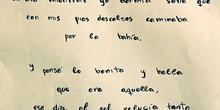 mientras yo dormía soñé que
con mis pies descalzos caminaba
por la bahía.
y pensé lo bonita y bella
que era aquella,
ese día el sol relucía tanto